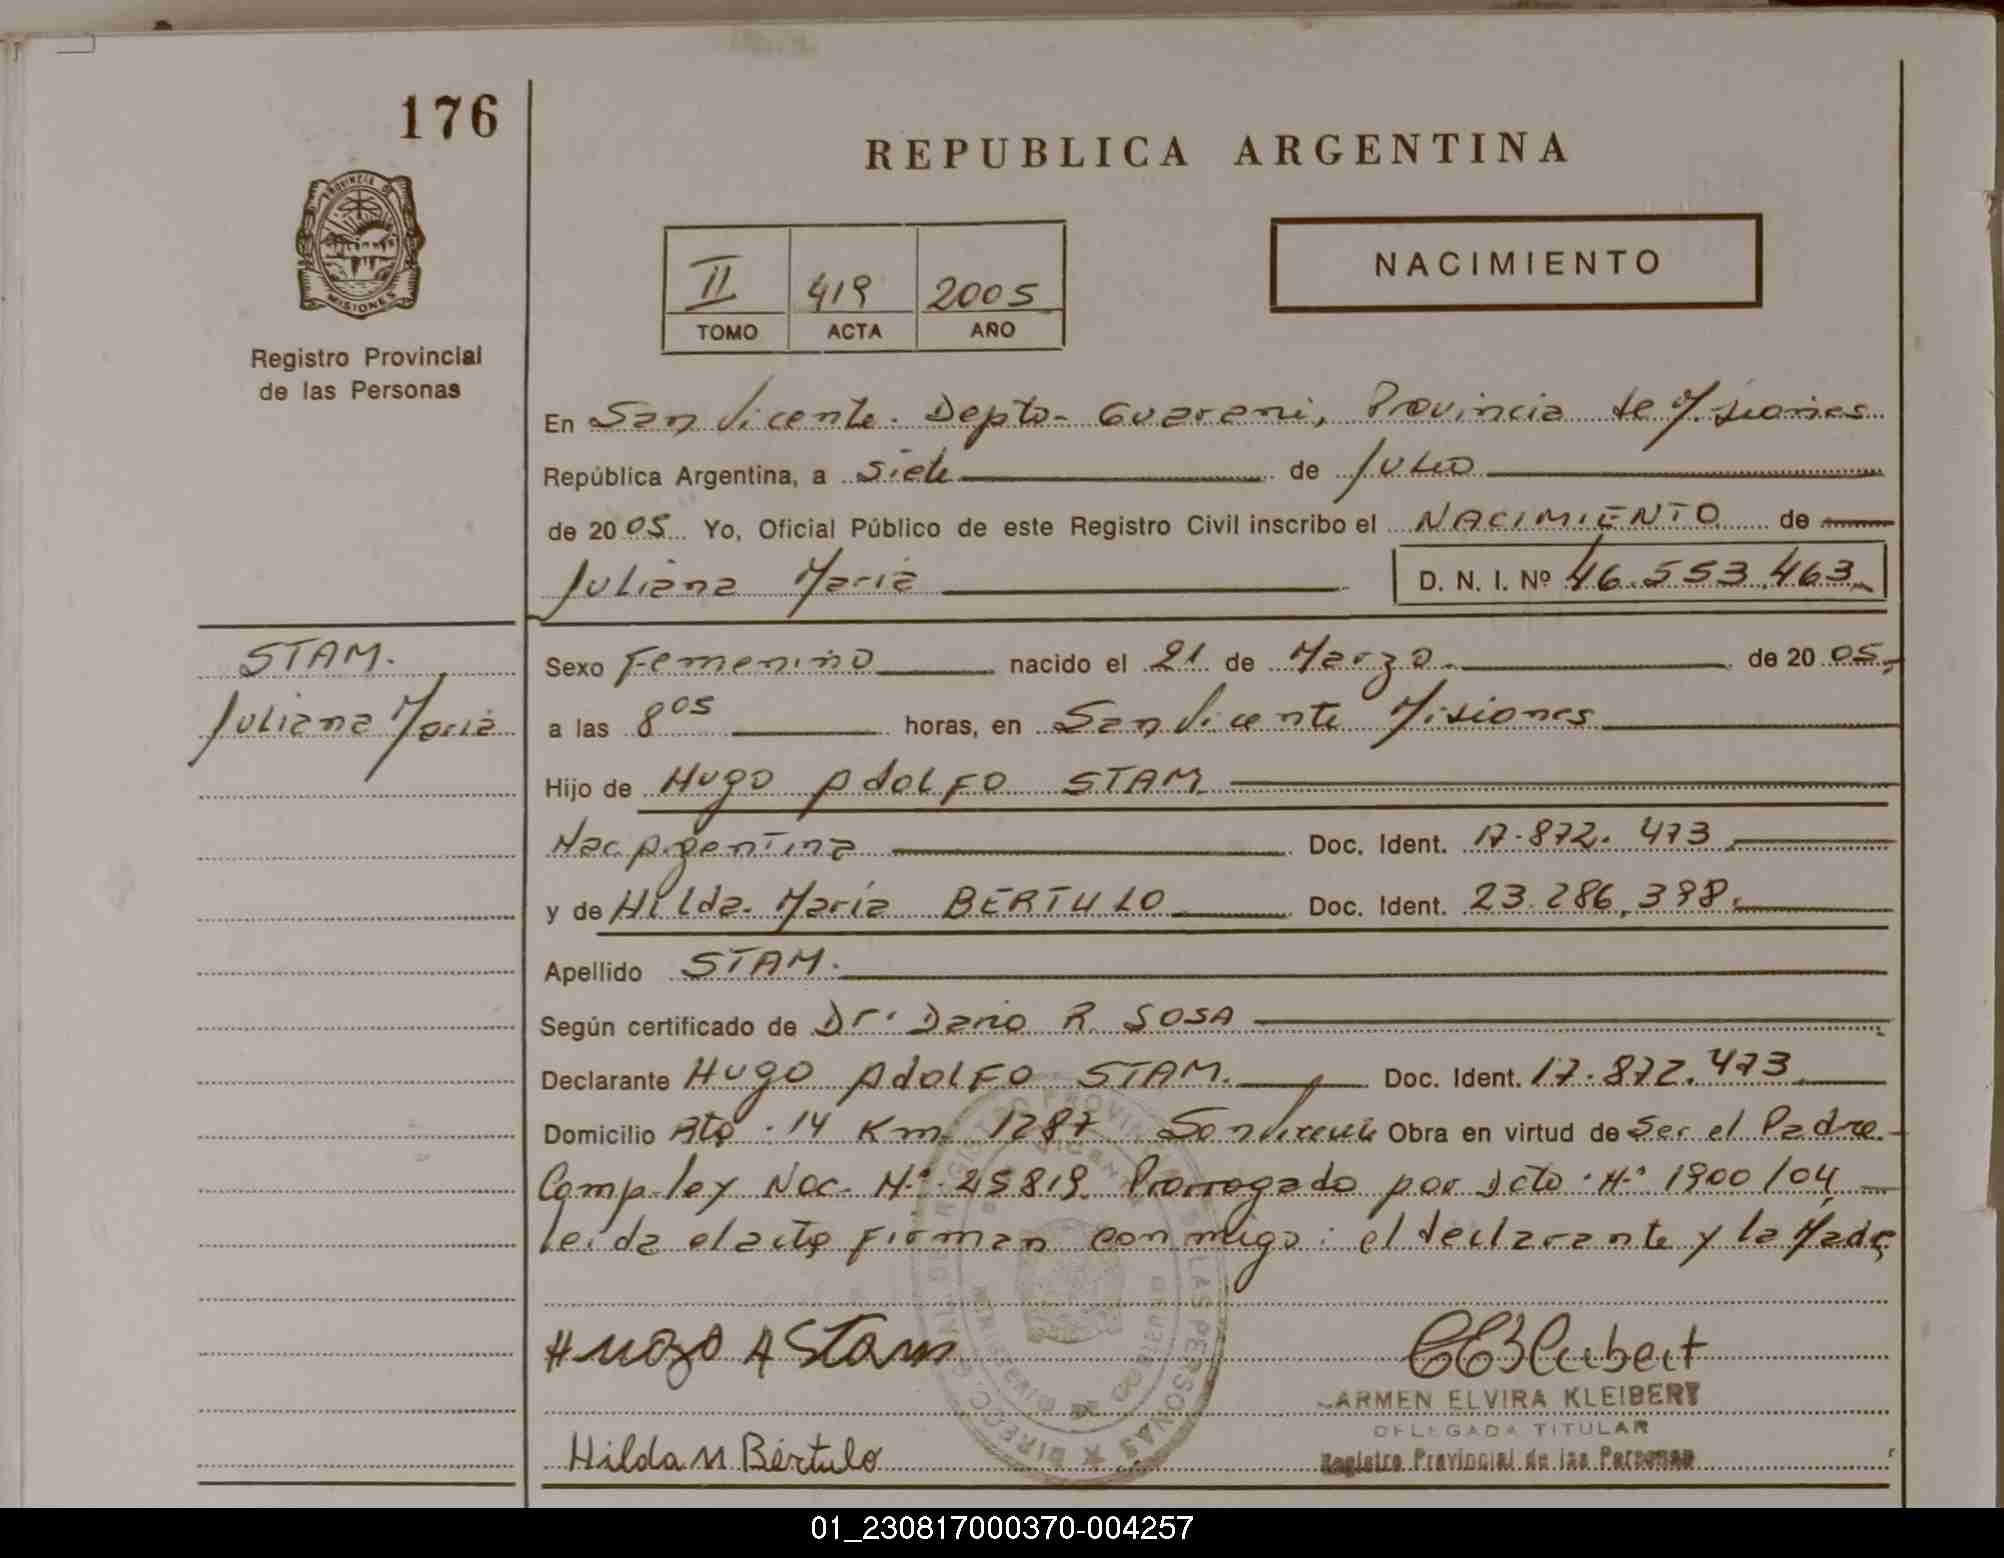 176
REPUBLICA ARGENTINA
PROVINCIA DE
MISIONES
Registro Provincial
de las Personas
II 419 2005
TOMO ACTA AÑO
NACIMIENTO
En San Vicente. Depto- Guarani, Provincia de Misiones
República Argentina, a siete de Julio
de 2005 Yo, Oficial Público de este Registro Civil inscribo el NACIMIENTO de
Juliana Maria D. N. I. Nº 46.553.463
STAM.
Juliana Maria
Sexo Femenino nacido el 21 de Marzo. de 20 05
a las 8 05 horas, en San Vicente Misiones
Hijo de Hugo AdOLFO STAM
Nac Argentina Doc. Ident. 17.872.473
y de Hilda Maria BERTULO Doc. Ident. 23.286.398.
Apellido STAM.
Según certificado de Dr. Dario R. SOSA
Declarante HUGO AdOLFO STAM. Doc. Ident. 17.872.473
Domicilio Rta. 14 Km 1287 San Vicente Obra en virtud de Ser el Padre.
Comp. ley Nac. Nº 25819. Prorrogado por Dcto. Nº 1900/04
leida el acta firman conmigo: el declarante y la Madre
Hugo A Stam
CEKleibert
ARMEN ELVIRA KLEIBERT
DELEGADA TITULAR
Registro Provincial de las Personas
Hilda M Bértulo
01_230817000370-004257